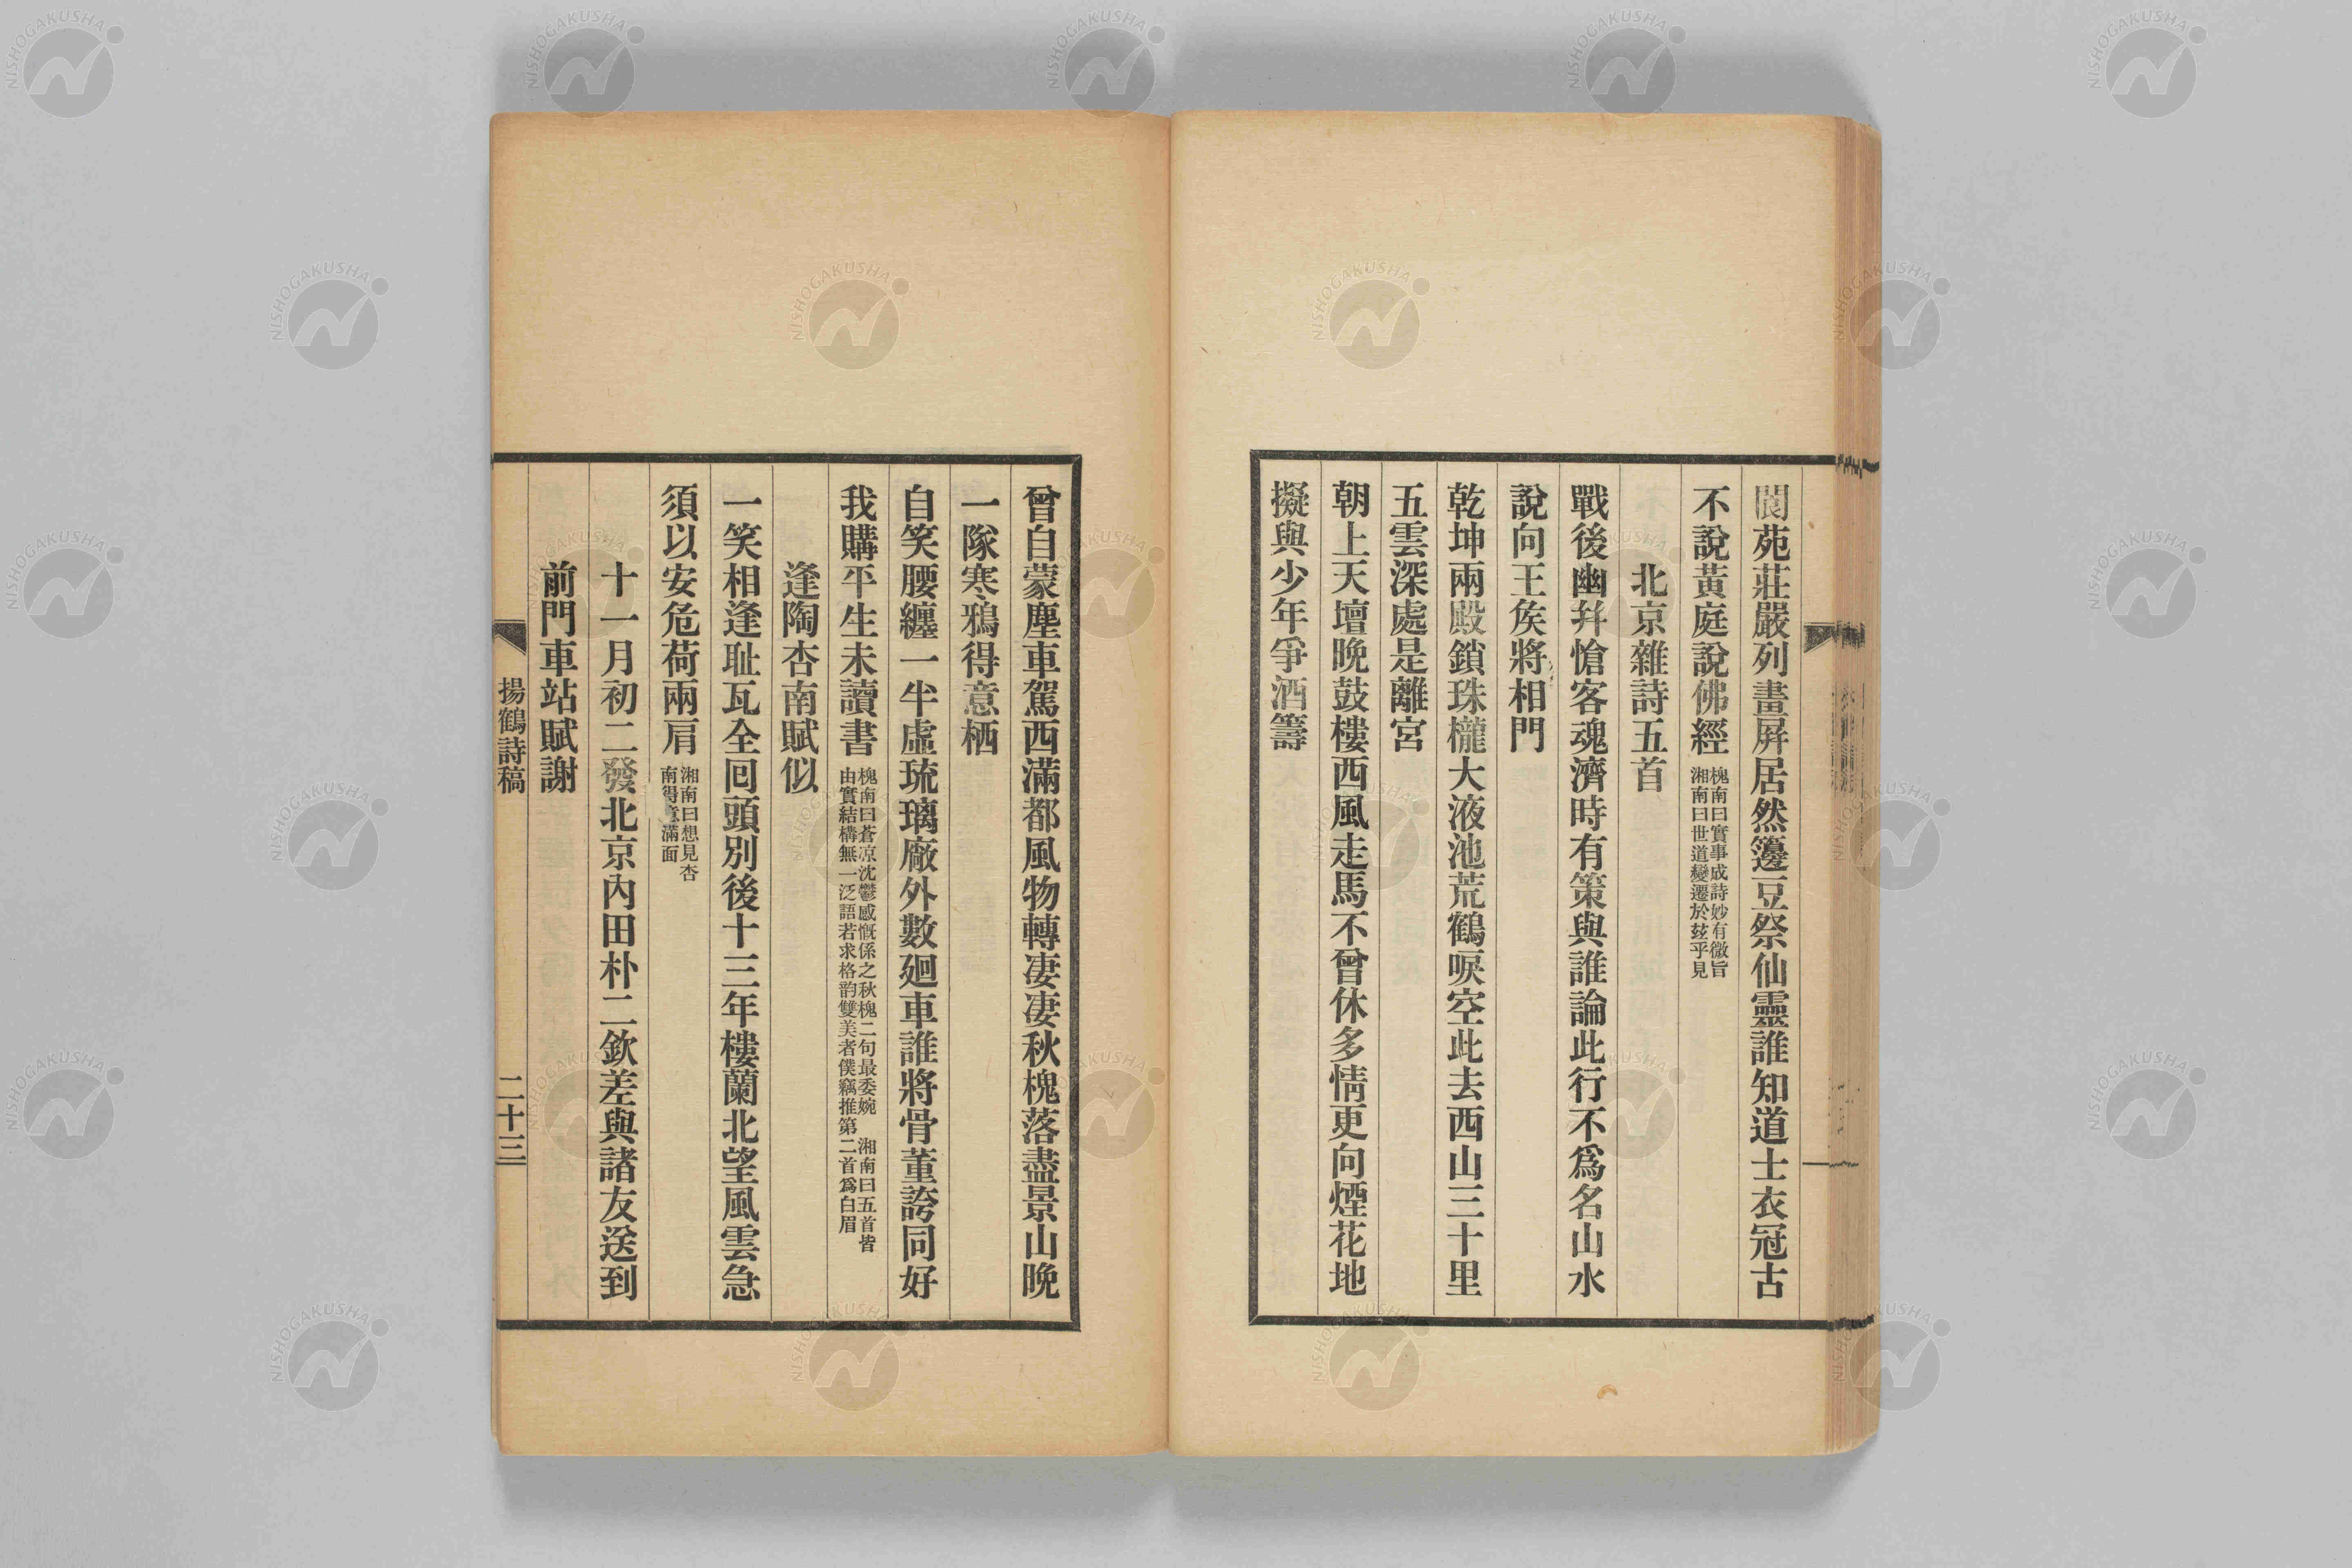 閬苑莊嚴列畫屛居然籩豆祭仙靈誰知道士衣冠古
不說黃庭說佛經
槐南曰實事成詩妙有微旨
湘南曰世道變遷於玆乎見
北京雜詩五首
戰後幽幷愴客魂濟時有策與誰論此行不爲名山水
說向王侯將相門
乾坤兩殿鎖珠櫳大液池荒鶴唳空此去西山三十里
五雲深處是離宮
朝上天壇晚鼓樓西風走馬不曾休多情更向煙花地
擬與少年爭酒籌
曾自蒙塵車駕西滿都風物轉凄凄秋槐落盡景山晚
一隊寒鴉得意栖
自笑腰纏一半虛琉璃廠外數廻車誰將骨董誇同好
我購平生未讀書
槐南曰蒼凉沈鬱感慨係之秋槐二句最委婉 湘南曰五首皆
由實結構無一泛語若求格韵雙美者僕竊推第二首爲白眉
逢陶杏南賦似
一笑相逢耻瓦全回頭別後十三年樓蘭北望風雲急
須以安危荷兩肩
湘南曰想見杏
南得意滿面
十一月初二發北京內田朴二欽差與諸友送到
前門車站賦謝
揚鶴詩稿
二十三
NISHOGAKUSHA